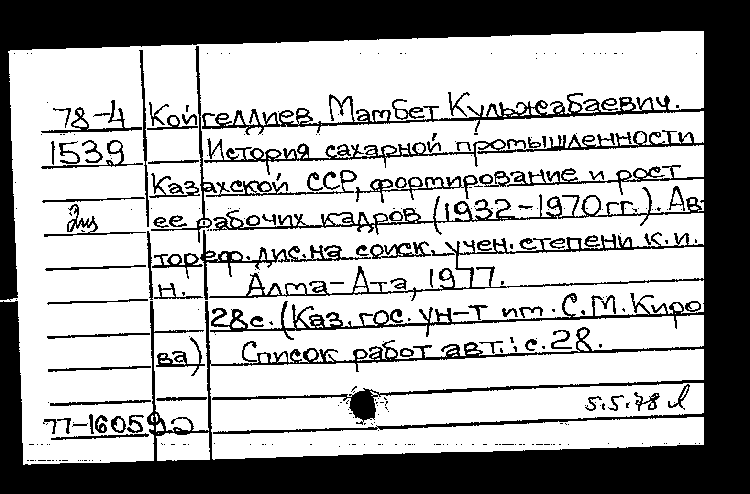 78-4 Койгелдиев, Мамбет Кульжабаевич.
1539 История сахарной промышленности
Казахской ССР, формирование и рост
ее рабочих кадров (1932-1970гг.). Ав-
тореф. дис. на соиск. учен. степени к.и.
н. Алма-Ата, 1977.
28с. (Каз. гос. ун-т им. С.М. Киро
ва) Список работ авт.: с.28.
5.5.78
77-16059